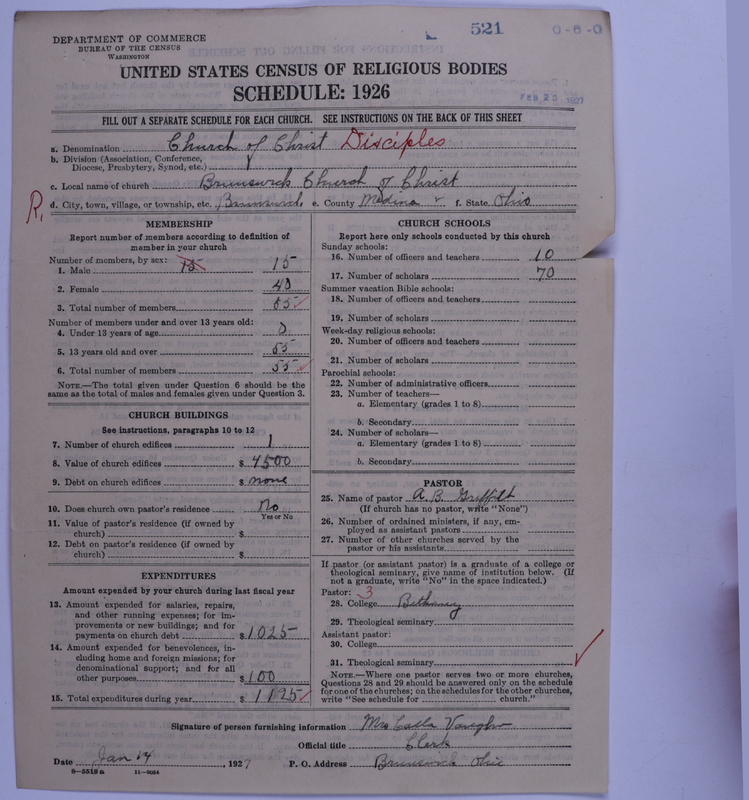 DEPARTMENT OF COMMERCE
BUREAU OF THE CENSUS
WASHINGTON
521
0-6-0
UNITED STATES CENSUS OF RELIGIOUS BODIES
SCHEDULE: 1926
FEB 23 1927
FILL OUT A SEPARATE SCHEDULE FOR EACH CHURCH. SEE INSTRUCTIONS ON THE BACK OF THIS SHEET
a. Denomination Church of Christ Disciples
b. Division (Association, Conference,
Diocese, Presbytery, Synod, etc.)
c. Local name of church Brunswick Church of Christ
R.
d. City, town, village, or township, etc. Brunswick e. County Medina f. State Ohio
MEMBERSHIP
Report number of members according to definition of
member in your church
Number of members, by sex:
1. Male 15 15
2. Female 40
3. Total number of members 55
Number of members under and over 13 years old:
4. Under 13 years of age 0
5. 13 years old and over 55
6. Total number of members 55
NOTE.—The total given under Question 6 should be the
same as the total of males and females given under Question 3.
CHURCH BUILDINGS
See instructions, paragraphs 10 to 12
7. Number of church edifices 1
8. Value of church edifices $ 4500
9. Debt on church edifices $ none
10. Does church own pastor's residence No
Yes or No
11. Value of pastor's residence (if owned by
church) $
12. Debt on pastor's residence (if owned by
church) $
EXPENDITURES
Amount expended by your church during last fiscal year
13. Amount expended for salaries, repairs,
and other running expenses; for im-
provements or new buildings; and for
payments on church debt $ 1025
14. Amount expended for benevolences, in-
cluding home and foreign missions; for
denominational support; and for all
other purposes $ 100
15. Total expenditures during year $ 1125
CHURCH SCHOOLS
Report here only schools conducted by this church
Sunday schools:
16. Number of officers and teachers 10
17. Number of scholars 70
Summer vacation Bible schools:
18. Number of officers and teachers
19. Number of scholars
Week-day religious schools:
20. Number of officers and teachers
21. Number of scholars
Parochial schools:
22. Number of administrative officers
23. Number of teachers—
a. Elementary (grades 1 to 8)
b. Secondary
24. Number of scholars—
a. Elementary (grades 1 to 8)
b. Secondary
PASTOR
25. Name of pastor A. B. Griffith
(If church has no pastor, write "None")
26. Number of ordained ministers, if any, em-
ployed as assistant pastors
27. Number of other churches served by the
pastor or his assistants
If pastor (or assistant pastor) is a graduate of a college or
theological seminary, give name of institution below. (If
not a graduate, write "No" in the space indicated.)
Pastor: 3
28. College Bethany
29. Theological seminary
Assistant pastor:
30. College
31. Theological seminary
NOTE.—Where one pastor serves two or more churches,
Questions 28 and 29 should be answered only on the schedule
for one of the churches; on the schedules for the other churches,
write "See schedule for church."
Signature of person furnishing information Mrs Calla Vaughn
Official title Clerk
Date Jan 14, 1927 P. O. Address Brunswick Ohio
8-5518a 11-9084